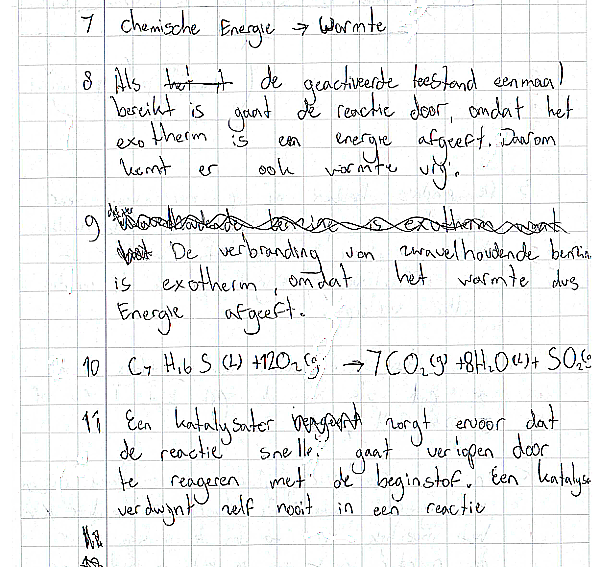 7 Chemische Energie → Warmte
8 Als het t de geactiveerde toestand eenmaal
bereikt is gaat de reactie door, omdat het
exotherm is en energie afgeeft. Daarom
komt er ook warmte vrij.
9 zwavelhoudende benzine is exotherm want
De verbranding van zwavelhoudende benzin
is exotherm, omdat het warmte dus
Energie afgeeft.
10 C₇ H₁₆ S (l) +12O₂(g) → 7CO₂(g) +8H₂O(l) + SO₂(g
11 Een katalysator reageert zorgt ervoor dat
de reactie sneller gaat verlopen door
te reageren met de beginstof. Een katalysa
verdwijnt zelf nooit in een reactie